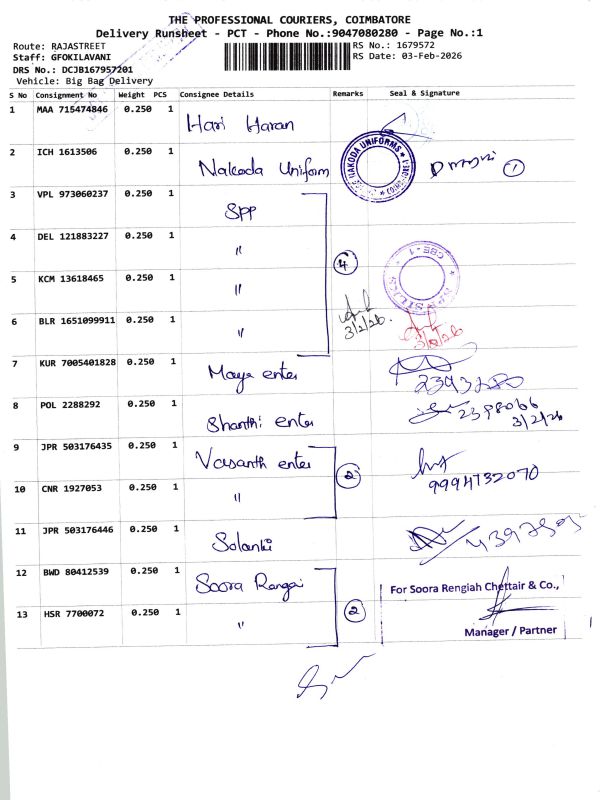 THE PROFESSIONAL COURIERS, COIMBATORE
Delivery Runsheet - PCT - Phone No.:9047080280 - Page No.:1
Route: RAJASTREET
RS No.: 1679572
Staff: GFOKILAVANI
RS Date: 03-Feb-2026
DRS No.: DCJB167957201
Vehicle: Big Bag Delivery
S No Consignment No Weight PCS Consignee Details Remarks Seal & Signature
1 MAA 715474846 0.250 1 Hari Haran
2 ICH 1613506 0.250 1 Nakoda Uniform NAKODA UNIFORMS 1
3 VPL 973060237 0.250 1 SPP
4 DEL 121883227 0.250 1 " 4 CBE-1
5 KCM 13618465 0.250 1 "
6 BLR 1651099911 0.250 1 " 3/2/26 3/2/26
7 KUR 7005401828 0.250 1 Maya enter
8 POL 2288292 0.250 1 Shanthi enter 2398066
3/2/26
9 JPR 503176435 0.250 1 Vasanth enter 2
9994732070
10 CNR 1927053 0.250 1 "
11 JPR 503176446 0.250 1 Solanki
12 BWD 80412539 0.250 1 Soora Rangai
For Soora Rengiah Chettair & Co.,
13 HSR 7700072 0.250 1 " 2
Manager / Partner